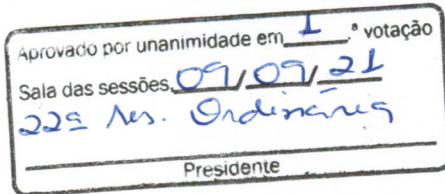 Aprovado por unanimidade em 1 .ª votação
Sala das sessões, 09/09/21
22ª Res. Ordinária
Presidente